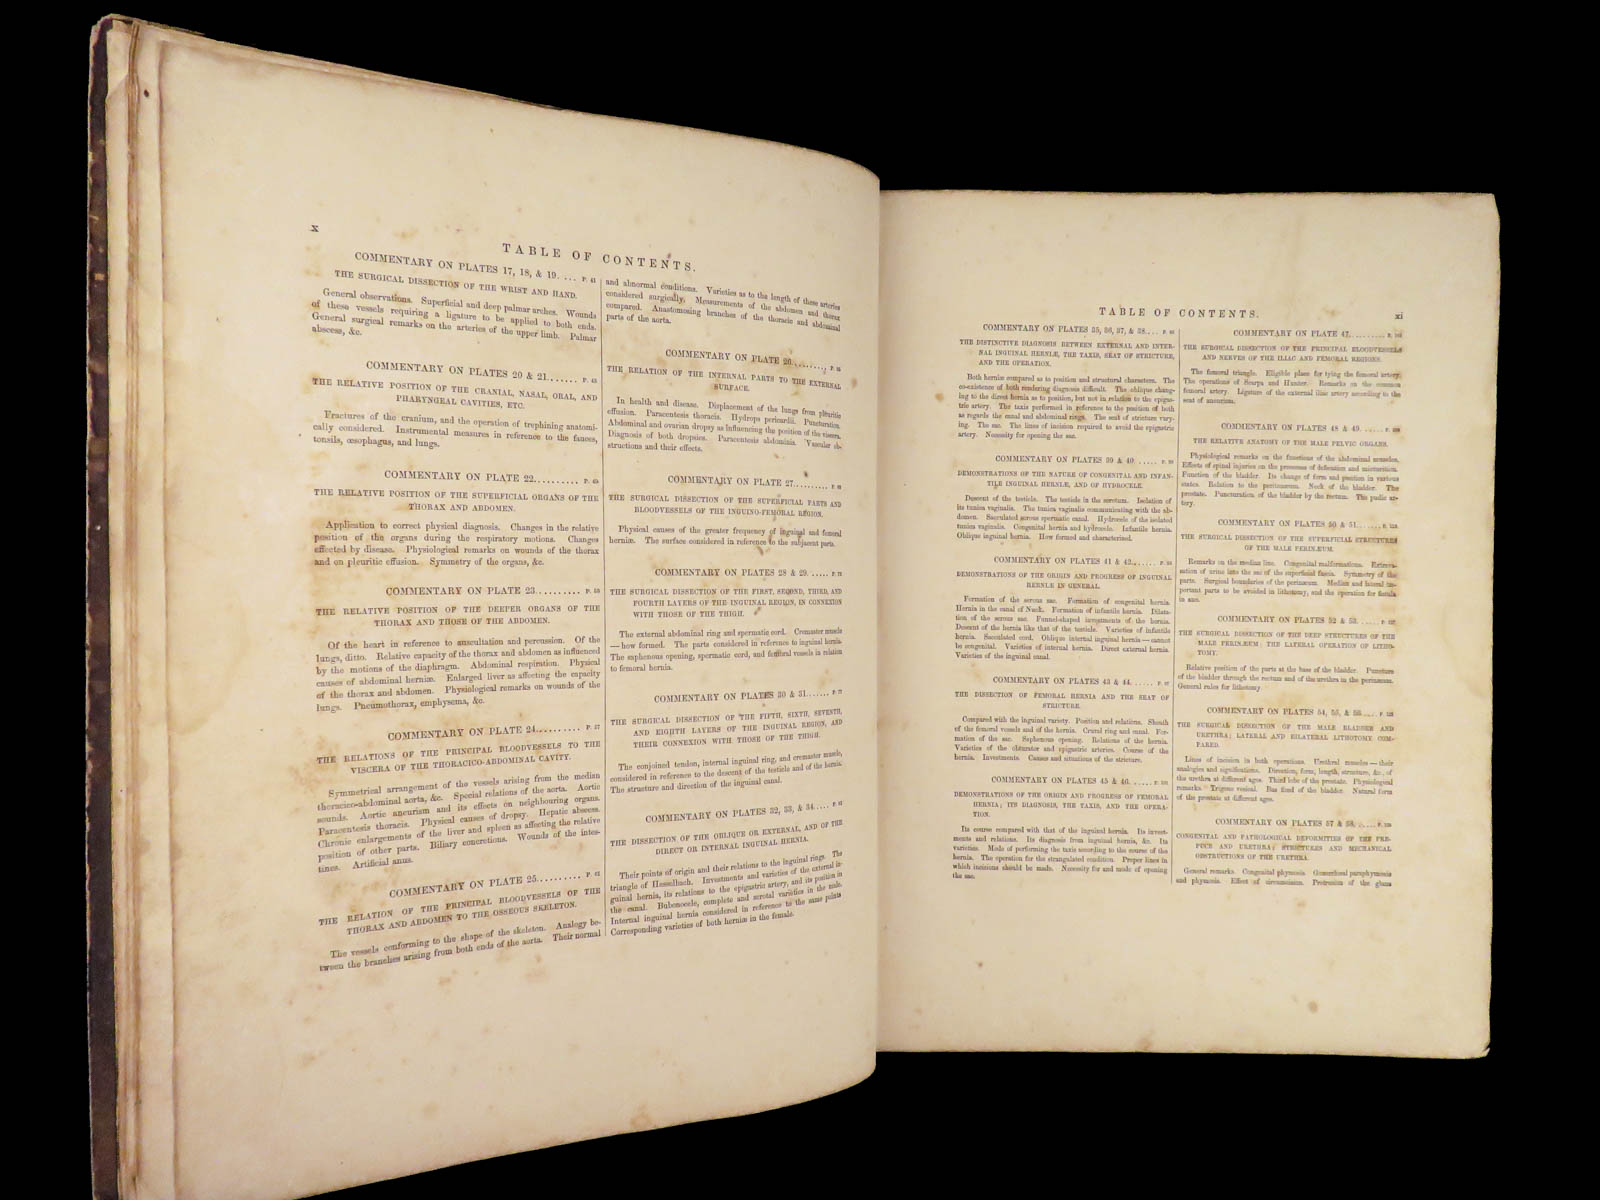 x
TABLE OF CONTENTS.
COMMENTARY ON PLATES 17, 18, & 19. ... P. 41
THE SURGICAL DISSECTION OF THE WRIST AND HAND.
General observations. Superficial and deep palmar arches. Wounds
of these vessels requiring a ligature to be applied to both ends.
General surgical remarks on the arteries of the upper limb. Palmar
abscess, &c.
COMMENTARY ON PLATES 20 & 21....... P. 45
THE RELATIVE POSITION OF THE CRANIAL, NASAL, ORAL, AND
PHARYNGEAL CAVITIES, ETC.
Fractures of the cranium, and the operation of trephining anatomi-
cally considered. Instrumental measures in reference to the fauces,
tonsils, œsophagus, and lungs.
COMMENTARY ON PLATE 22.......... P. 49
THE RELATIVE POSITION OF THE SUPERFICIAL ORGANS OF THE
THORAX AND ABDOMEN.
Application to correct physical diagnosis. Changes in the relative
position of the organs during the respiratory motions. Changes
effected by disease. Physiological remarks on wounds of the thorax
and on pleuritic effusion. Symmetry of the organs, &c.
COMMENTARY ON PLATE 23.......... P. 53
THE RELATIVE POSITION OF THE DEEPER ORGANS OF THE
THORAX AND THOSE OF THE ABDOMEN.
Of the heart in reference to auscultation and percussion. Of the
lungs, ditto. Relative capacity of the thorax and abdomen as influenced
by the motions of the diaphragm. Abdominal respiration. Physical
causes of abdominal herniæ. Enlarged liver as affecting the capacity
of the thorax and abdomen. Physiological remarks on wounds of the
lungs. Pneumothorax, emphysema, &c.
COMMENTARY ON PLATE 24.......... P. 57
THE RELATIONS OF THE PRINCIPAL BLOODVESSELS TO THE
VISCERA OF THE THORACICO-ABDOMINAL CAVITY.
Symmetrical arrangement of the vessels arising from the median
thoracico-abdominal aorta, &c. Special relations of the aorta. Aortic
sounds. Aortic aneurism and its effects on neighbouring organs.
Paracentesis thoracis. Physical causes of dropsy. Hepatic abscess.
Chronic enlargements of the liver and spleen as affecting the relative
position of other parts. Biliary concretions. Wounds of the intes-
tines. Artificial anus.
COMMENTARY ON PLATE 25.......... P. 61
THE RELATION OF THE PRINCIPAL BLOODVESSELS OF THE
THORAX AND ABDOMEN TO THE OSSEOUS SKELETON.
The vessels conforming to the shape of the skeleton. Analogy be-
tween the branches arising from both ends of the aorta. Their normal
and abnormal conditions. Varieties as to the length of these arteries
considered surgically. Measurements of the abdomen and thorax
compared. Anastomosing branches of the thoracic and abdominal
parts of the aorta.
COMMENTARY ON PLATE 26........,
THE RELATION OF THE INTERNAL PARTS TO THE EXTERNAL
SURFACE.
In health and disease. Displacement of the lungs from pleuritic
effusion. Paracentesis thoracis. Hydrops pericardii. Puncturation.
Abdominal and ovarian dropsy as influencing the position of the viscera.
Diagnosis of both dropsies. Paracentesis abdominis. Vascular ob-
structions and their effects.
COMMENTARY ON PLATE 27..........
THE SURGICAL DISSECTION OF THE SUPERFICIAL PARTS AND
BLOODVESSELS OF THE INGUINO-FEMORAL REGION.
Physical causes of the greater frequency of inguinal and femoral
herniæ. The surface considered in reference to the subjacent parts.
COMMENTARY ON PLATES 28 & 29. ....
THE SURGICAL DISSECTION OF THE FIRST, SECOND, THIRD, AND
FOURTH LAYERS OF THE INGUINAL REGION, IN CONNEXION
WITH THOSE OF THE THIGH.
The external abdominal ring and spermatic cord. Cremaster muscle
—how formed. The parts considered in reference to inguinal hernia.
The saphenous opening, spermatic cord, and femoral vessels in relation
to femoral hernia.
COMMENTARY ON PLATES 30 & 31......
THE SURGICAL DISSECTION OF THE FIFTH, SIXTH, SEVENTH,
AND EIGHTH LAYERS OF THE INGUINAL REGION, AND
THEIR CONNEXION WITH THOSE OF THE THIGH.
The conjoined tendon, internal inguinal ring, and cremaster muscle,
considered in reference to the descent of the testicle and of the hernia.
The structure and direction of the inguinal canal.
COMMENTARY ON PLATES 32, 33, & 34....
THE DISSECTION OF THE OBLIQUE OR EXTERNAL, AND OF THE
DIRECT OR INTERNAL INGUINAL HERNIA.
Their points of origin and their relations to the inguinal rings. The
triangle of Hesselbach. Investments and varieties of the external in-
guinal hernia, its relations to the epigastric artery, and its position in
the canal. Bubonocele, complete and scrotal varieties in the male.
Internal inguinal hernia considered in reference to the same points
Corresponding varieties of both herniæ in the female.
TABLE OF CONTENTS.
xi
COMMENTARY ON PLATES 35, 36, 37, & 38....
THE DISTINCTIVE DIAGNOSIS BETWEEN EXTERNAL AND INTER-
NAL INGUINAL HERNIÆ, THE TAXIS, SEAT OF STRICTURE,
AND THE OPERATION.
Both herniæ compared as to position and structural characters. The
co-existence of both rendering diagnosis difficult. The oblique chang-
ing to the direct hernia as to position, but not in relation to the epigas-
tric artery. The taxis performed in reference to the position of both
as regards the canal and abdominal rings. The seat of stricture vary-
ing. The sac. The lines of incision required to avoid the epigastric
artery. Necessity for opening the sac.
COMMENTARY ON PLATES 39 & 40. .....
DEMONSTRATIONS OF THE NATURE OF CONGENITAL AND INFAN-
TILE INGUINAL HERNIÆ, AND OF HYDROCELE.
Descent of the testicle. The testicle in the scrotum. Isolation of
its tunica vaginalis. The tunica vaginalis communicating with the ab-
domen. Sacculated serous spermatic canal. Hydrocele of the isolated
tunica vaginalis. Congenital hernia and hydrocele. Infantile hernia.
Oblique inguinal hernia. How formed and characterized.
COMMENTARY ON PLATES 41 & 42......
DEMONSTRATIONS OF THE ORIGIN AND PROGRESS OF INGUINAL
HERNIÆ IN GENERAL.
Formation of the serous sac. Formation of congenital hernia.
Hernia in the canal of Nuck. Formation of infantile hernia. Dilata-
tion of the serous sac. Funnel-shaped investments of the hernia.
Descent of the hernia like that of the testicle. Varieties of infantile
hernia. Sacculated cord. Oblique internal inguinal hernia—cannot
be congenital. Varieties of internal hernia. Direct external hernia.
Varieties of the inguinal canal.
COMMENTARY ON PLATES 43 & 44. .....
THE DISSECTION OF FEMORAL HERNIA AND THE SEAT OF
STRICTURE.
Compared with the inguinal variety. Position and relations. Sheath
of the femoral vessels and of the hernia. Crural ring and canal. For-
mation of the sac. Saphenous opening. Relations of the hernia.
Varieties of the obturator and epigastric arteries. Course of the
hernia. Investments. Causes and situations of the stricture.
COMMENTARY ON PLATES 45 & 46. ..... P. 101
DEMONSTRATIONS OF THE ORIGIN AND PROGRESS OF FEMORAL
HERNIA; ITS DIAGNOSIS, THE TAXIS, AND THE OPERA-
TION.
Its course compared with that of the inguinal hernia. Its invest-
ments and relations. Its diagnosis from inguinal hernia, &c. Its
varieties. Mode of performing the taxis according to the course of the
hernia. The operation for the strangulated condition. Proper lines in
which incisions should be made. Necessity for and mode of opening
the sac.
COMMENTARY ON PLATE 47..........
THE SURGICAL DISSECTION OF THE PRINCIPAL BLOODVESSELS
AND NERVES OF THE ILIAC AND FEMORAL REGIONS.
The femoral triangle. Eligible place for tying the femoral artery.
The operations of Scarpa and Hunter. Remarks on the common
femoral artery. Ligature of the external iliac artery according to the
seat of aneurism.
COMMENTARY ON PLATES 48 & 49. .....
THE RELATIVE ANATOMY OF THE MALE PELVIC ORGANS.
Physiological remarks on the functions of the abdominal muscles.
Effects of spinal injuries on the processes of defecation and micturition.
Function of the bladder. Its change of form and position in various
states. Relation to the peritonæum. Neck of the bladder. The
prostate. Puncturation of the bladder by the rectum. The pudic ar-
tery.
COMMENTARY ON PLATES 50 & 51......
THE SURGICAL DISSECTION OF THE SUPERFICIAL STRUCTURES
OF THE MALE PERINÆUM.
Remarks on the median line. Congenital malformations. Extrava-
sation of urine into the sac of the superficial fascia. Symmetry of the
parts. Surgical boundaries of the perinæum. Median and lateral im-
portant parts to be avoided in lithotomy, and the operation for fistula
in ano.
COMMENTARY ON PLATES 52 & 53. ....
THE SURGICAL DISSECTION OF THE DEEP STRUCTURES OF THE
MALE PERINÆUM; THE LATERAL OPERATION OF LITHO-
TOMY.
Relative position of the parts at the base of the bladder. Puncture
of the bladder through the rectum and of the urethra in the perinæum.
General rules for lithotomy
COMMENTARY ON PLATES 54, 55, & 56....
THE SURGICAL DISSECTION OF THE MALE BLADDER AND
URETHRA; LATERAL AND BILATERAL LITHOTOMY COM-
PARED.
Lines of incision in both operations. Urethral muscles—their
analogies and significations. Direction, form, length, structure, &c., of
the urethra at different ages. Third lobe of the prostate. Physiological
remarks. Trigone vesical. Bas fond of the bladder. Natural form
of the prostate at different ages.
COMMENTARY ON PLATES 57 & 58......
CONGENITAL AND PATHOLOGICAL DEFORMITIES OF THE PRE-
PUCE AND URETHRA; STRICTURES AND MECHANICAL
OBSTRUCTIONS OF THE URETHRA.
General remarks. Congenital phymosis. Gonorrhœal paraphymosis
and phymosis. Effect of circumcision. Protrusion of the glans